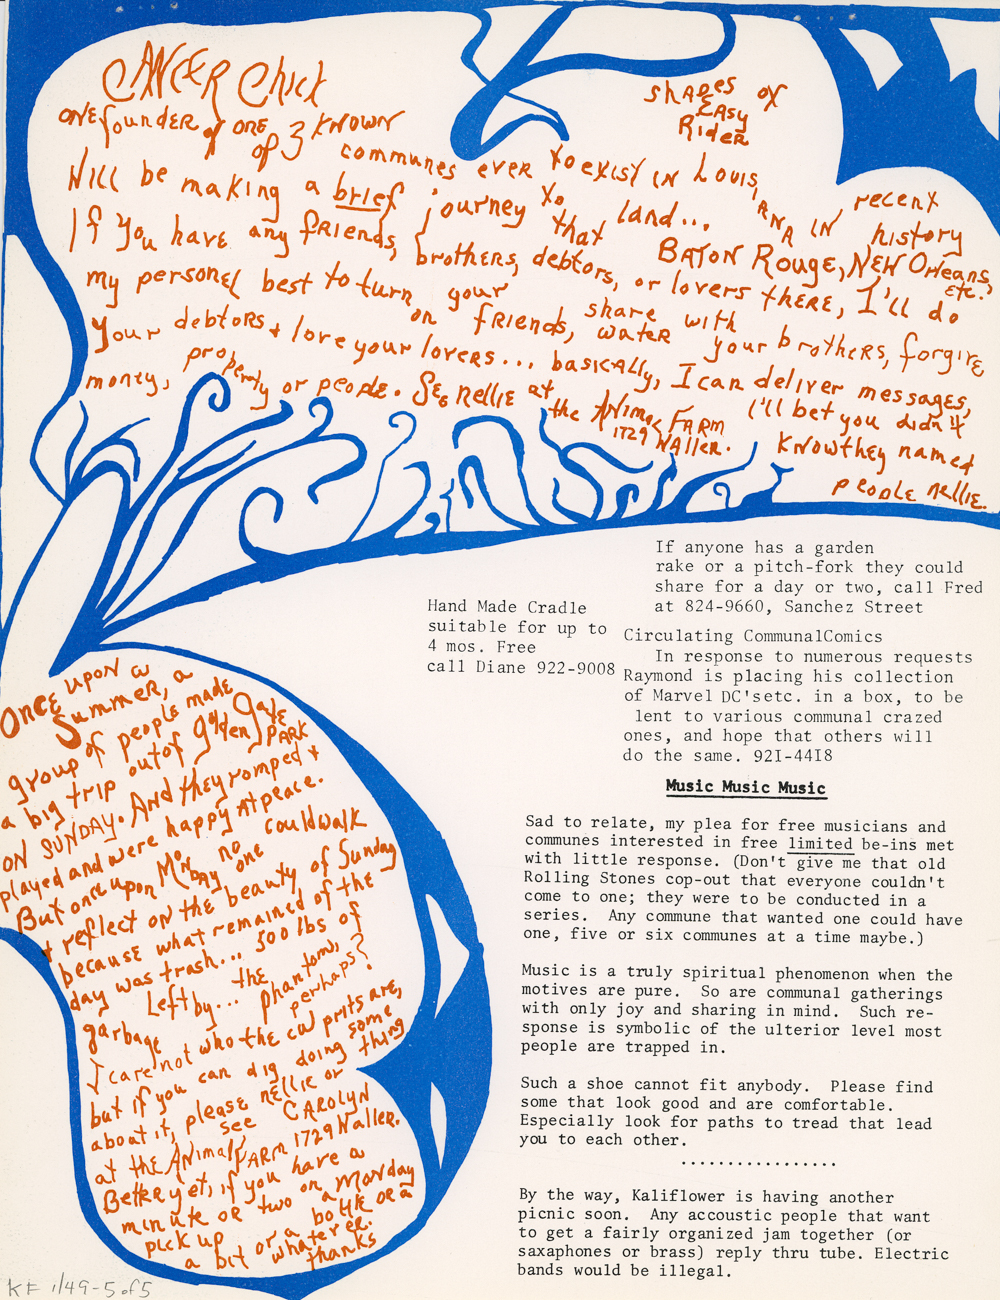 CANCER Chick
ONE founder of ONE of 3 KNOWN communes ever to exist in Louisiana in recent history
shades of
Easy
Rider
Will be making a brief journey to that land... BATON Rouge, NEW Orleans, etc.
If you have any friends, brothers, debtors, or lovers there, I'll do
my personel best to turn on your friends, share water with your brothers, forgive
your debtors + love your lovers... basically, I can deliver messages,
money, property or people. See Nellie at the Animal Farm 1729 Waller. I'll bet you didn't
know they named
people nellie.
If anyone has a garden
rake or a pitch-fork they could
share for a day or two, call Fred
at 824-9660, Sanchez Street
Hand Made Cradle
suitable for up to
4 mos. Free
call Diane 922-9008
Circulating CommunalComics
In response to numerous requests
Raymond is placing his collection
of Marvel DC'setc. in a box, to be
lent to various communal crazed
ones, and hope that others will
do the same. 92I-44I8
Once upon a
Summer, a
group of people made
a big trip out of golden Gate PARK
on SUNDAY. And they romped +
played and were happy at peace.
But once upon Monday no one could walk
+ reflect on the beauty of Sunday
because what remained of the
day was trash... 500 lbs of
garbage Left by... the phantom, perhaps?
I care not who the culprits are,
but if you can dig doing some thing
about it, please see nellie or CAROLYN
at the Animal FARM 1729 Waller.
Better yet, if you have a
minute or two on a Monday
pick up a bottle or a
a bit or a whatever.
thanks
Music Music Music
Sad to relate, my plea for free musicians and
communes interested in free limited be-ins met
with little response. (Don't give me that old
Rolling Stones cop-out that everyone couldn't
come to one; they were to be conducted in a
series. Any commune that wanted one could have
one, five or six communes at a time maybe.)
Music is a truly spiritual phenomenon when the
motives are pure. So are communal gatherings
with only joy and sharing in mind. Such re-
sponse is symbolic of the ulterior level most
people are trapped in.
Such a shoe cannot fit anybody. Please find
some that look good and are comfortable.
Especially look for paths to tread that lead
you to each other.
.................
By the way, Kaliflower is having another
picnic soon. Any accoustic people that want
to get a fairly organized jam together (or
saxaphones or brass) reply thru tube. Electric
bands would be illegal.
KF 1/49-5 of 5